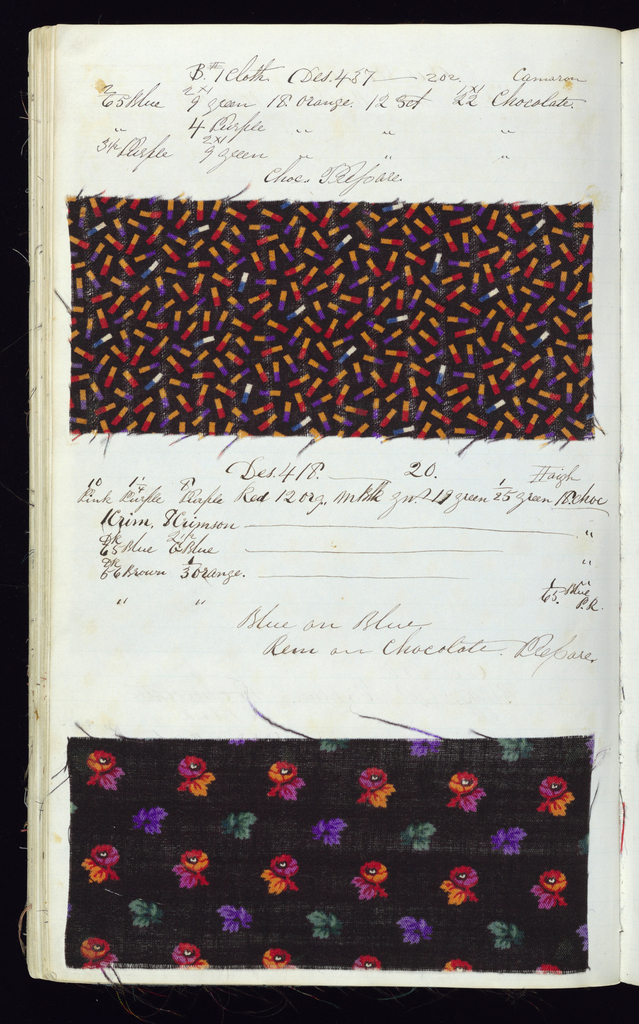 Cloth Des. 437 — 20z. Cameron
65 Blue 9 green 18 Orange. 12 Sct 22 Chocolate.
" 4 Purple " " "
3½ Purple 9 green " " "
Choc. Prepare.
Des. 418. — 20. Haigh
10 Pink Purple 8 Purple Red 12 org. 12 green green 18 Choc
Crim. 8 Crimson — "
DK 65 Blue Blue — "
DK 56 Brown 3 Orange. — "
" " 65. Blue P.R.
Blue on Blue
Rem on Chocolate. Prepare.